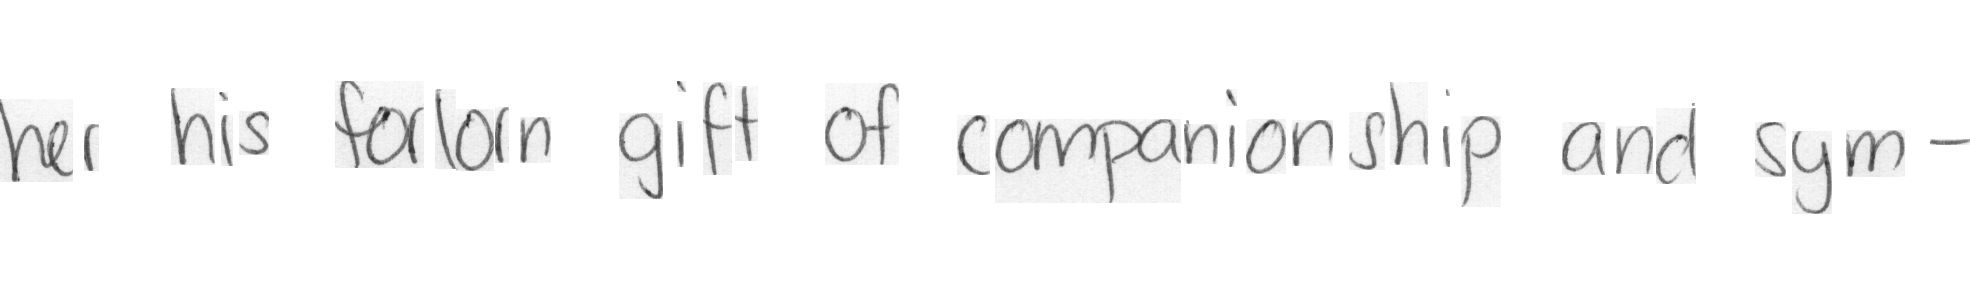 her his forlorn gift of companionship and sym-